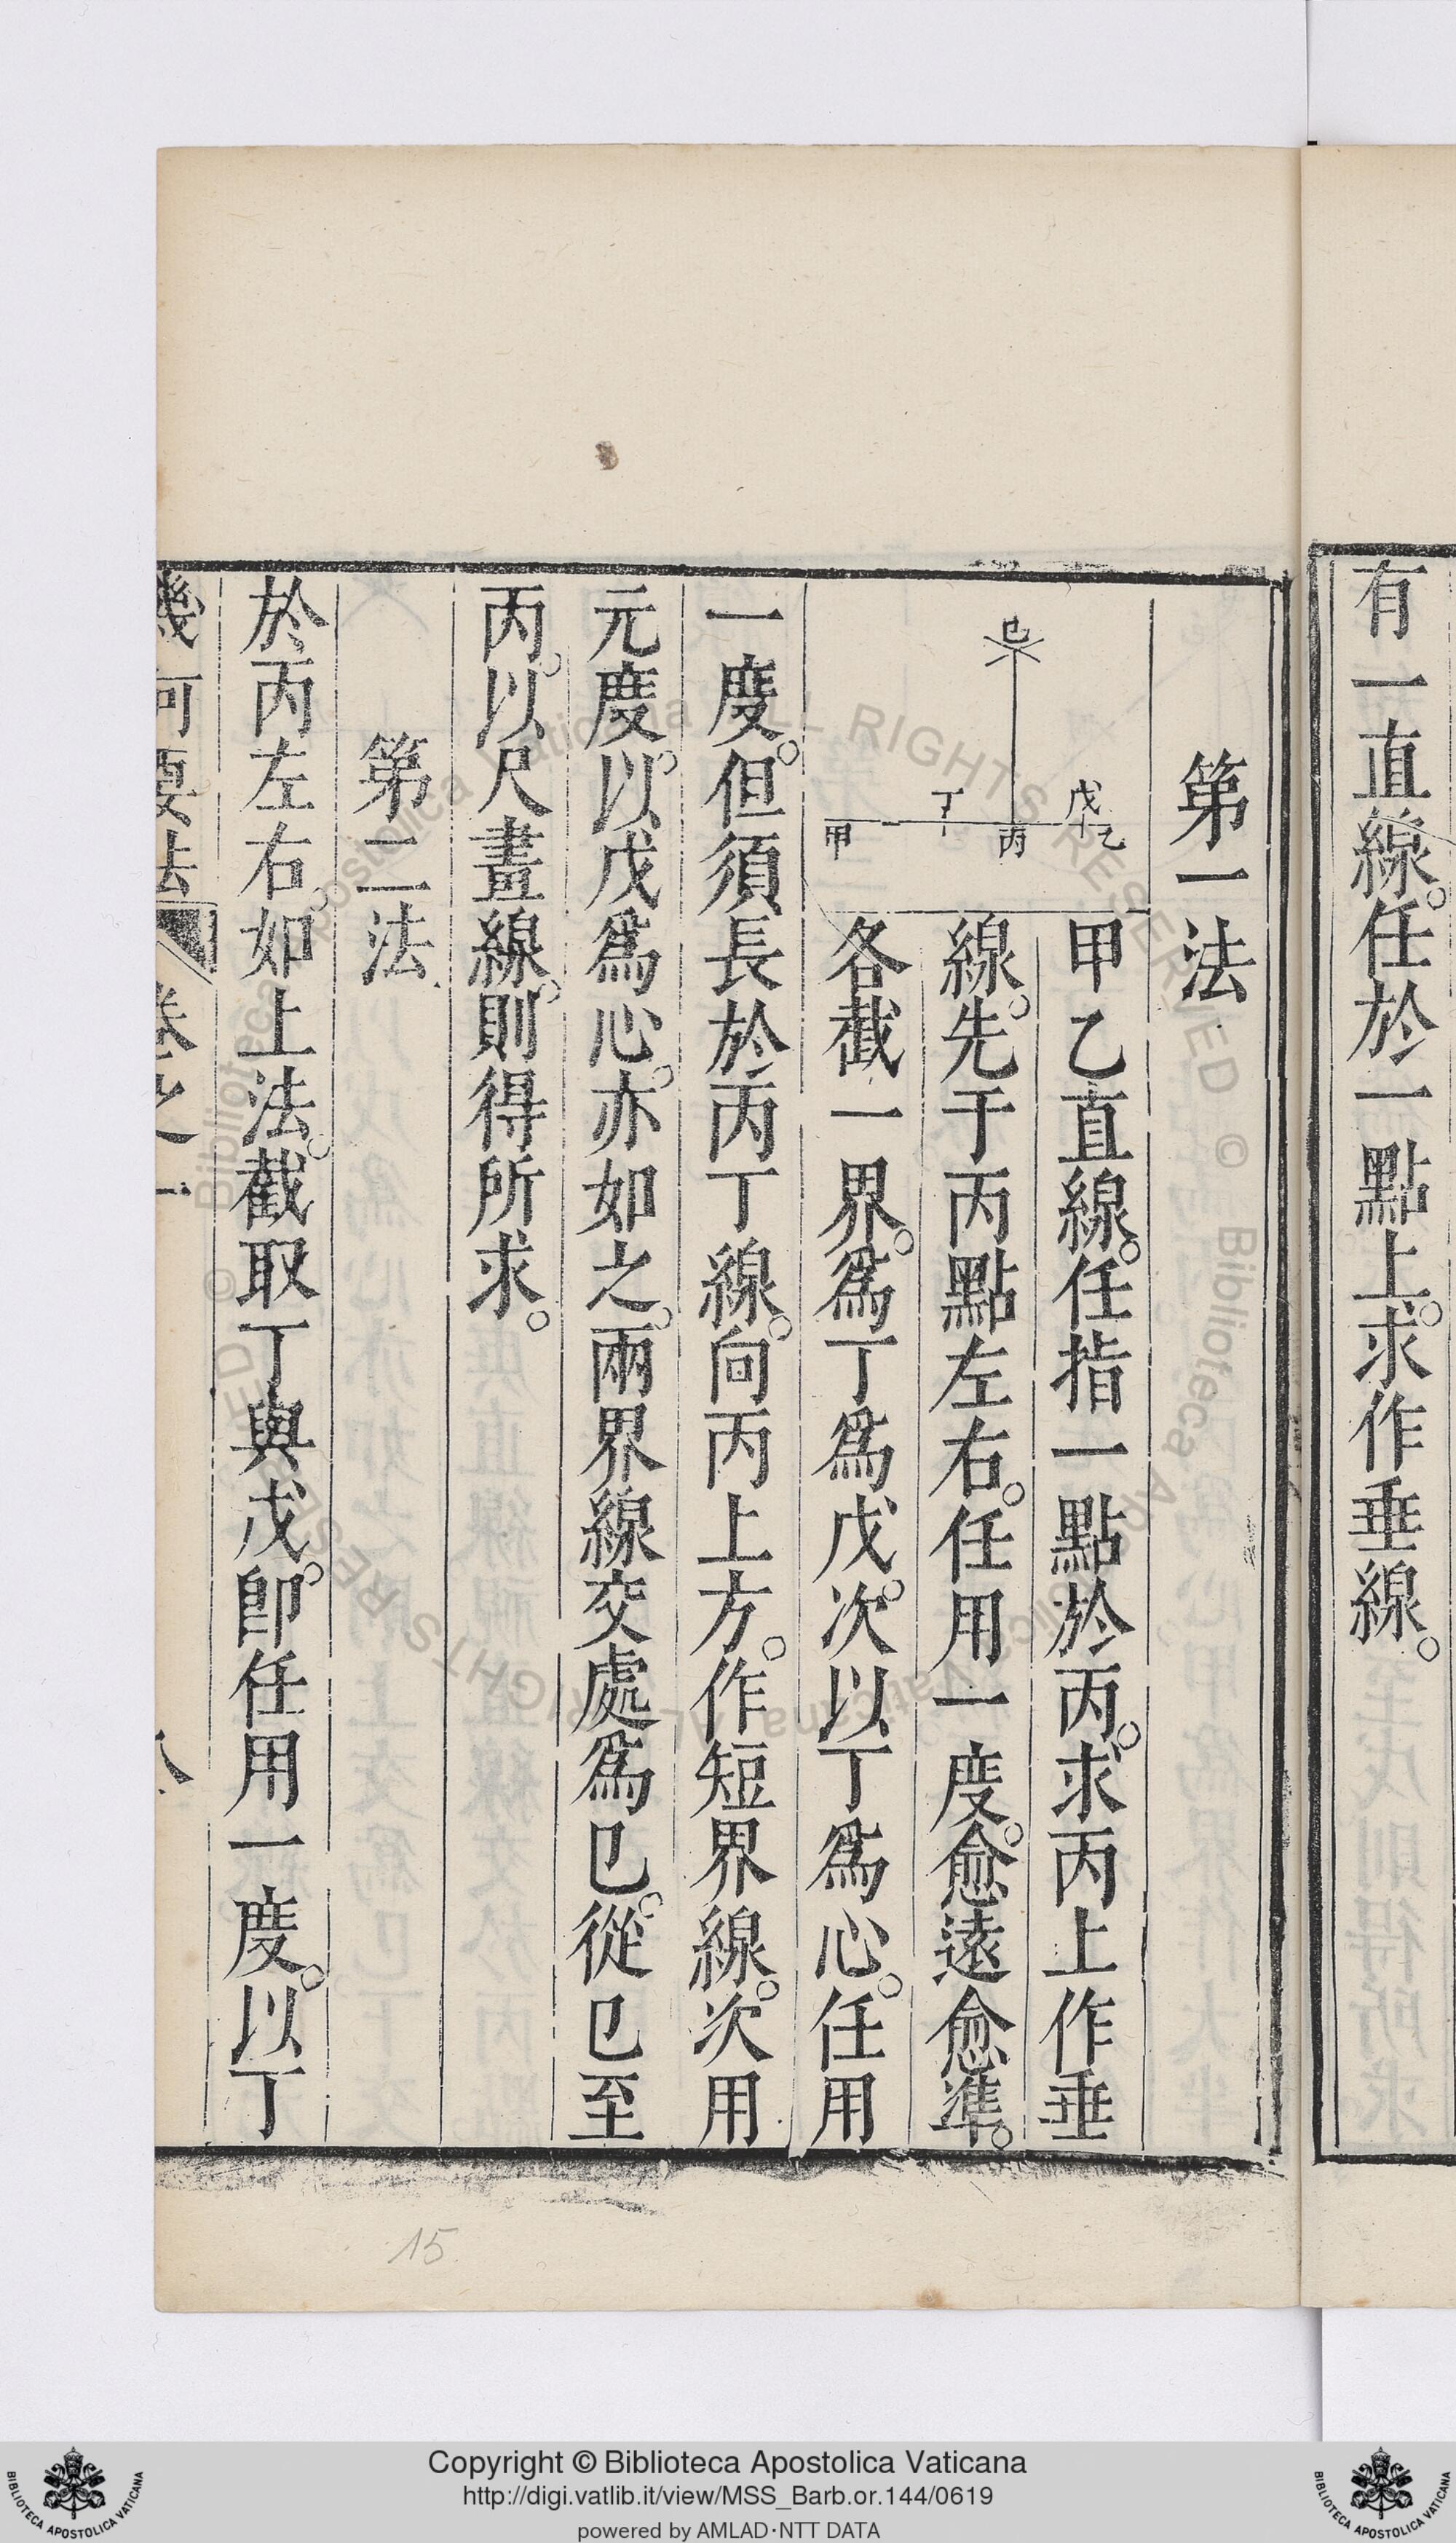 有一直線。任於一點上。求作垂線。
第一法
甲乙直線。任指一點於丙。求丙上作垂
線。先于丙點左右。任用一度。愈遠愈準。
各截一界。爲丁爲戊。次以丁爲心。任用
己
戊
丁
乙
丙
甲
一度。但須長於丙丁線。向丙上方。作短界線。次用
元度。以戊爲心。亦如之。兩界線交處爲已。從已至
丙。以尺畫線。則得所求。
第二法
於丙左右。如上法。截取丁與戊。卽任用一度。以丁
幾何要法 卷之一 八
15
Copyright © Biblioteca Apostolica Vaticana
http://digi.vatlib.it/view/MSS_Barb.or.144/0619
powered by AMLAD·NTT DATA
BIBLIOTECA APOSTOLICA VATICANA
BIBLIOTECA APOSTOLICA VATICANA